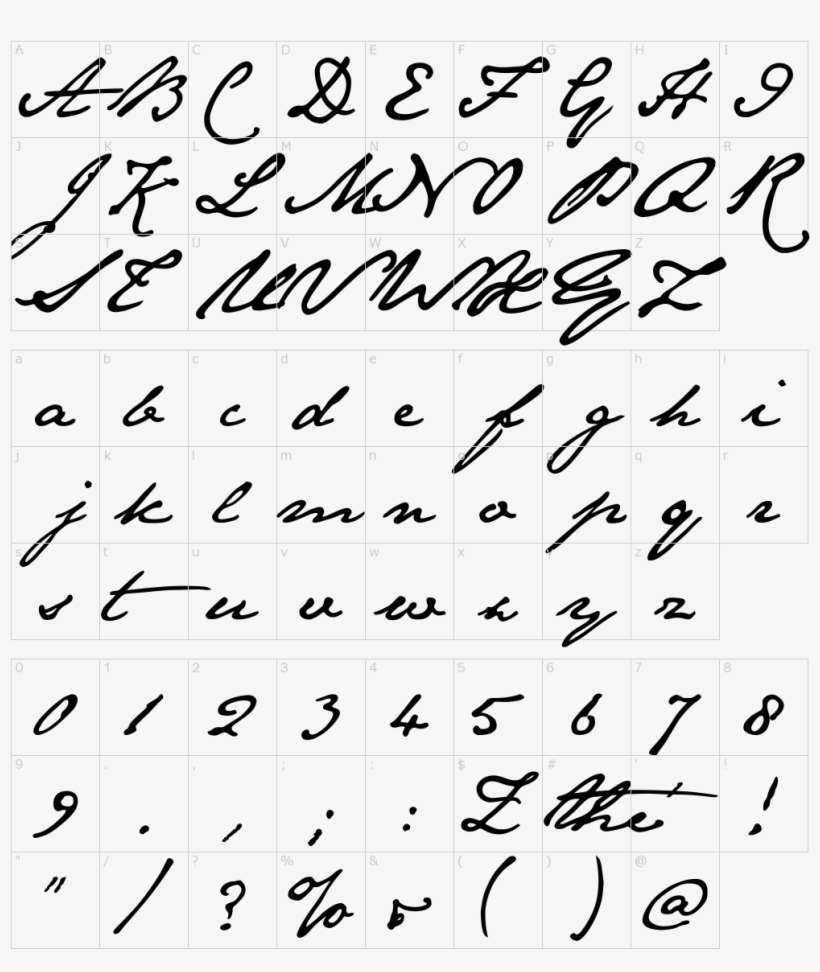 A B C D E F G H I
A B C D E F G H I
J K L M N O P Q R
J K L M N O P Q R
S T U V W X Y Z
S T U V W X Y Z
a b c d e f g h i
a b c d e f g h i
j k l m n o p q r
j k l m n o p q r
s t u v w x y z
s t u v w x y z
0 1 2 3 4 5 6 7 8
0 1 2 3 4 5 6 7 8
9 . , ; : $ # ' !
9 . , ; : £ the ' !
" / ? % & ( ) @
" / ? % & ( ) @